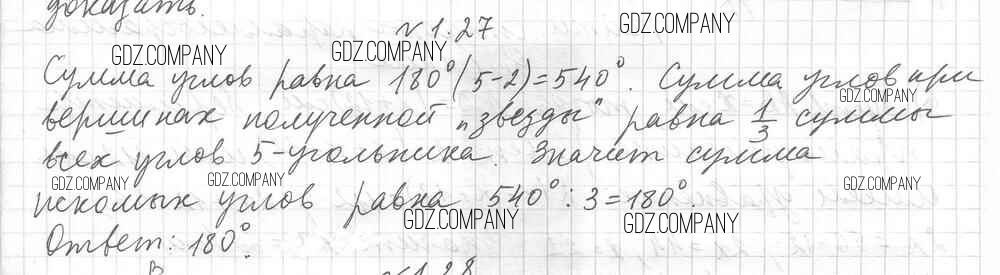 доказать.
№ 1.27
GDZ.COMPANY GDZ.COMPANY GDZ.COMPANY
Сумма углов равна 180°(5-2)=540°. Сумма углов при
GDZ.COMPANY
вершинах полученной „звезды" равна 1/3 суммы
всех углов 5-угольника. Значит сумма
GDZ.COMPANY GDZ.COMPANY GDZ.COMPANY
искомых углов равна 540°:3=180°.
GDZ.COMPANY GDZ.COMPANY
Ответ: 180°.
№ 1.28